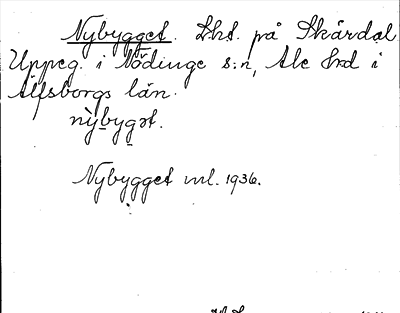 Nybygget. Lht. på Skårdal
Uppeg. i Nödinge s:n, Ale hrd i
Älfsborgs län.
nỳbygət.
Nybygget ml. 1936.